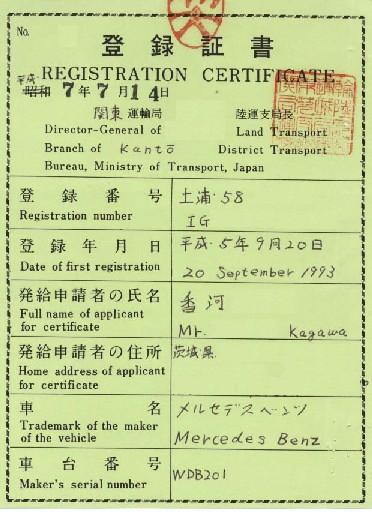 No.
登録証書
REGISTRATION CERTIFICATE
平成
昭和 7年7月14日
関東 運輸局 陸運支局長
Director-General of Land Transport
Branch of Kantō District Transport
Bureau, Ministry of Transport, Japan
登録番号 土浦・58
Registration number IG
登録年月日 平成・5年9月20日
Date of first registration 20 September 1993
発給申請者の氏名 香河
Full name of applicant
for certificate Mr. Kagawa
発給申請者の住所 茨城県
Home address of applicant
for certificate
車名 メルセデスベンツ
Trademark of the maker
of the vehicle Mercedes Benz
車台番号 WDB201
Maker's serial number